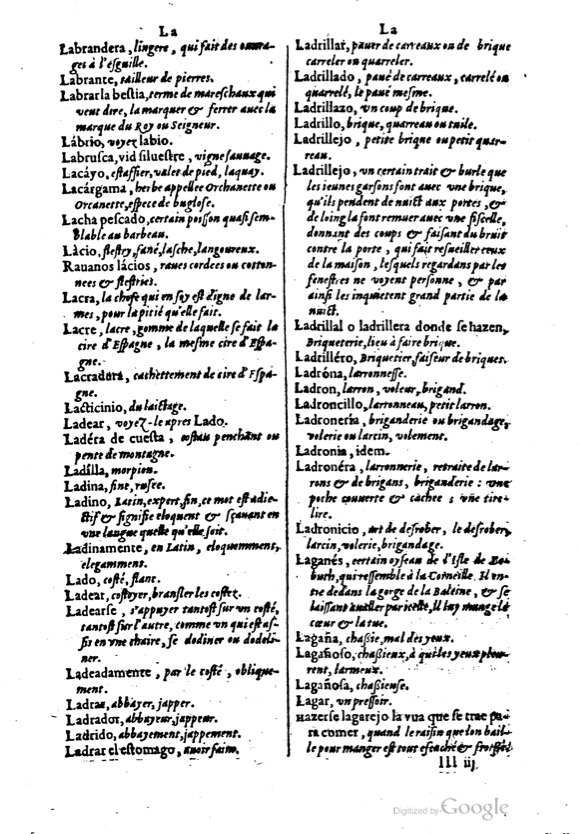 La
Labrandera, lingere, qui fait des ouura-
ges à l'esguille.
Labrante, tailleur de pierres.
Labrar la bestia, terme de mareschaux qui
veut dire, la marquer & ferrer auec la
marque du Roy ou Seigneur.
Lábrio, voyez labio.
Labrusca, vid siluestre, vigne sauuage.
Lacáyo, estaffier, valet de pied, laquay.
Lacárgama, herbe appellee Orchanette ou
Orcanette, espece de buglose.
Lacha pescado, certain poisson quasi sem-
blable au barbeau.
Lácio, flestry, fané, lasche, langoureux.
Rauanos lácios, raues cordees ou cotton-
nees & flestries.
Lacra, la chose qui en soy est digne de lar-
mes, pour la pitié qu'elle fait.
Lacre, lacre, gomme de laquelle se fait la
cire d'Espagne, la mesme cire d'Espa-
gne.
Lacradura, cachettement de cire d'Espa-
gne.
Lacticinio, du laictage.
Ladear, voyez-le apres Lado.
Ladéra de cuesta, costau penchant ou
pente de montagne.
Ladilla, morpion.
Ladina, fine, rusee.
Ladino, Latin, expert, fin, ce mot est adie-
ctif & signifie eloquent & sçauant en
vne langue quelle qu'elle soit.
Ladinamente, en Latin, eloquemment,
elegamment.
Lado, costé, flanc.
Ladear, costoyer, bransler les costez.
Ladearse, s'appuyer tantost sur vn costé,
tantost sur l'autre, comme vn qui est as-
sis en vne chaire, se dodiner ou dodeli-
ner.
Ladeadamente, par le costé, oblique-
ment.
Ladrar, abbayer, japper.
Ladrador, abbayeur, jappeur.
Ladrido, abbayement, jappement.
Ladrar el estomago, auoir faim.
La
Ladrillar, pauer de carreaux ou de brique
carreler ou quarreler.
Ladrillado, paué de carreaux, carrelé ou
quarrelé, le paué mesme.
Ladrillazo, vn coup de brique.
Ladrillo, brique, quarreau ou tuile.
Ladrillejo, petite brique ou petit quar-
reau.
Ladrillejo, vn certain trait & burle que
les ieunes garsons font auec vne brique,
qu'ils pendent de nuict aux portes, &
de loing la font remuer auec vne fiscelle,
donnant des coups & faisant du bruit
contre la porte, qui fait resueiller ceux
de la maison, lesquels regardans par les
fenestres ne voyent personne, & par
ainsi les inquietent grand partie de la
nuict.
Ladrillal o ladrillera donde se hazen,
Briqueterie, lieu à faire brique.
Ladrilléro, Briquetier, faiseur de briques.
Ladróna, larronnesse.
Ladron, larron, voleur, brigand.
Ladroncillo, larronneau, petit larron.
Ladronería, briganderie ou brigandage,
volerie ou larcin, volement.
Ladronia, idem.
Ladronéra, larronnerie, retraite de lar-
rons & de brigans, briganderie : vne
poche couuerte & cachee ; vne tire-
lire.
Ladronicio, art de desrober, le desrober,
larcin, volerie, brigandage.
Laganés, certain oyseau de l'Isle de
qui ressemble à la Corneille. Il en-
tre dedans la gorge de la Baleine, & se
laissant auller par icelle, il luy mange le
cœur & la tue.
Lagaña, chassie, mal des yeux.
Lagañoso, chassieux, à qui les yeux pleu-
rent, larmeux.
Lagañosa, chassieuse.
Lagar, vn pressoir.
Hazerse lagarejo la vua que se trae pa-
ra comer, quand le raisin que lon bail-
le pour manger est tout escaché & froissé
lll iij
Digitized by Google